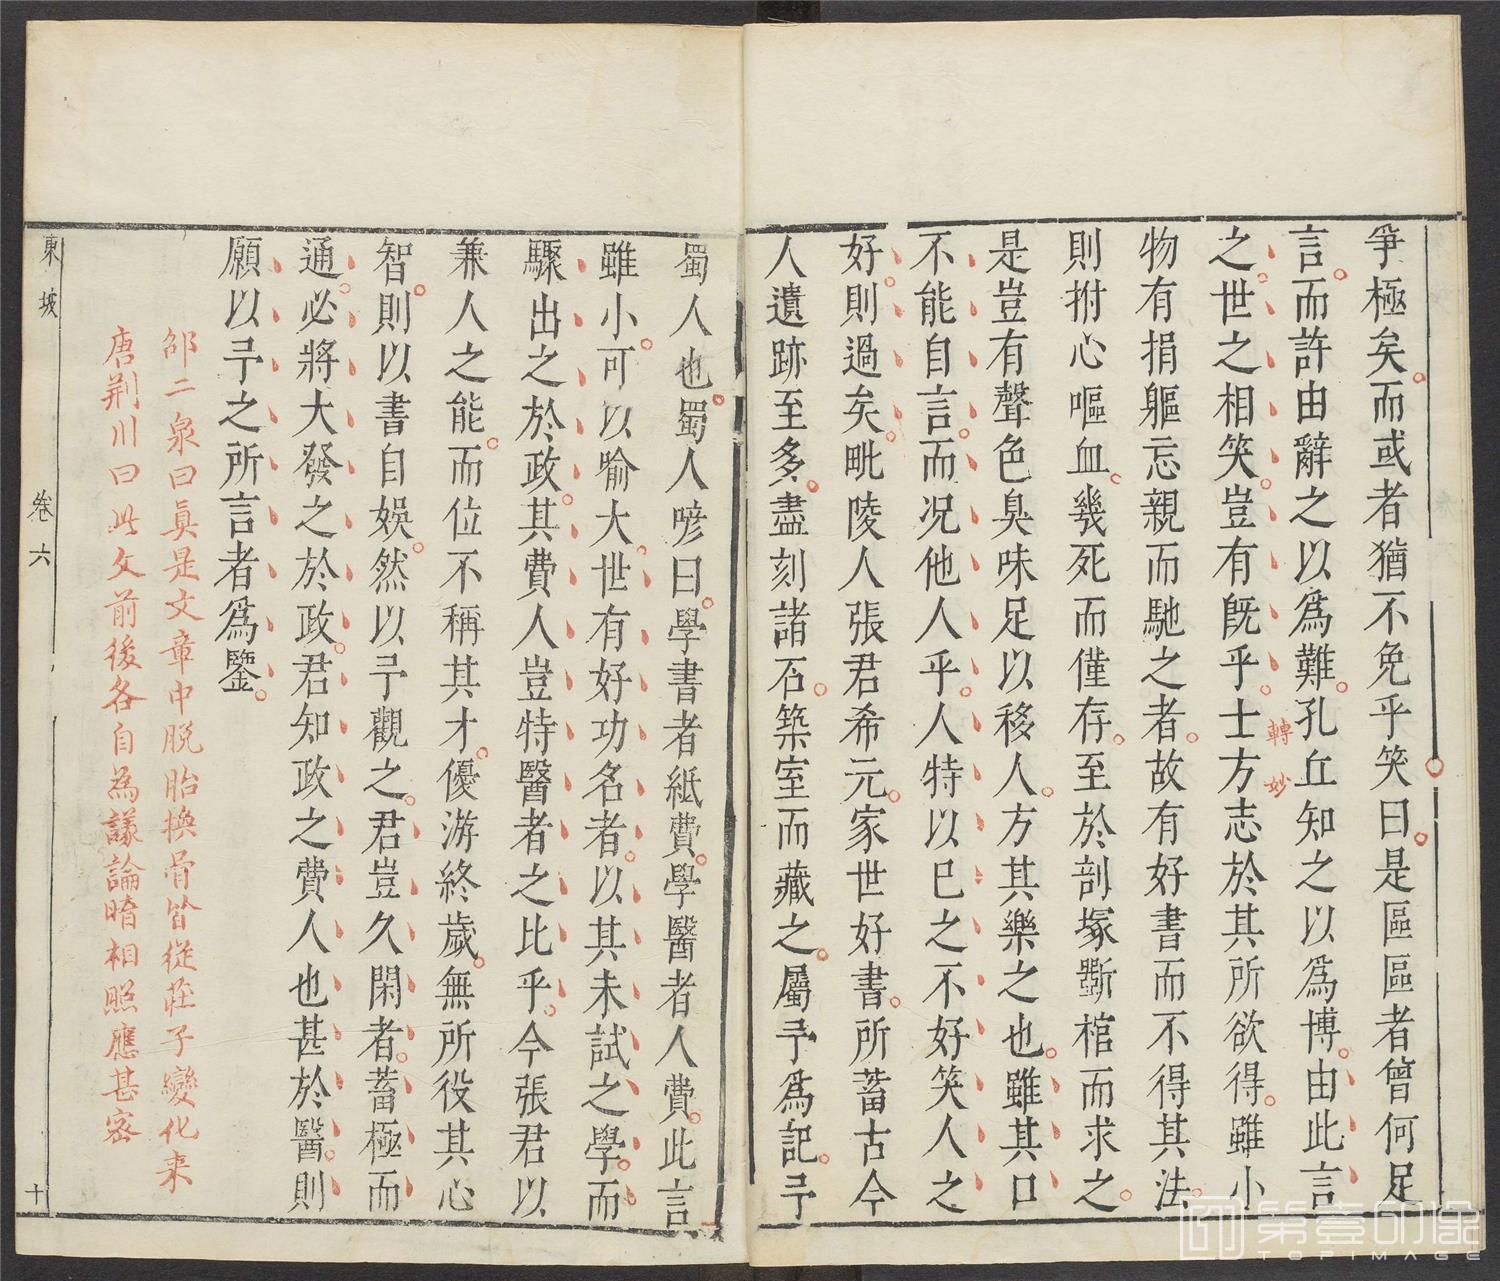 爭極矣而或者猶不免乎笑曰是區區者曾何足
言而許由辭之以爲難孔丘知之以爲博由此言
之世之相笑豈有旣乎士方志於其所欲得雖小
轉妙
物有捐軀忘親而馳之者故有好書而不得其法
則拊心嘔血幾死而僅存至於剖塚斲棺而求之
是豈有聲色臭味足以移人方其樂之也雖其口
不能自言而况他人乎人特以巳之不好笑人之
好則過矣毗陵人張君希元家世好書所蓄古今
人遺跡至多盡刻諸石築室而藏之屬予爲記予
蜀人也蜀人諺曰學書者紙費學醫者人費此言
雖小可以喻大世有好功名者以其未試之學而
驟出之於政其費人豈特醫者之比乎今張君以
兼人之能而位不稱其才優游終歲無所役其心
智則以書自娛然以予觀之君豈久閑者蓄極而
通必將大發之於政君知政之費人也甚於醫則
願以予之所言者爲鑒
邵二泉曰眞是文章中脱胎換骨皆從莊子變化来
唐荆川曰此文前後各自為議論暗相照應甚密
東坡
卷六
十
第壹印像
TOPIMAGE